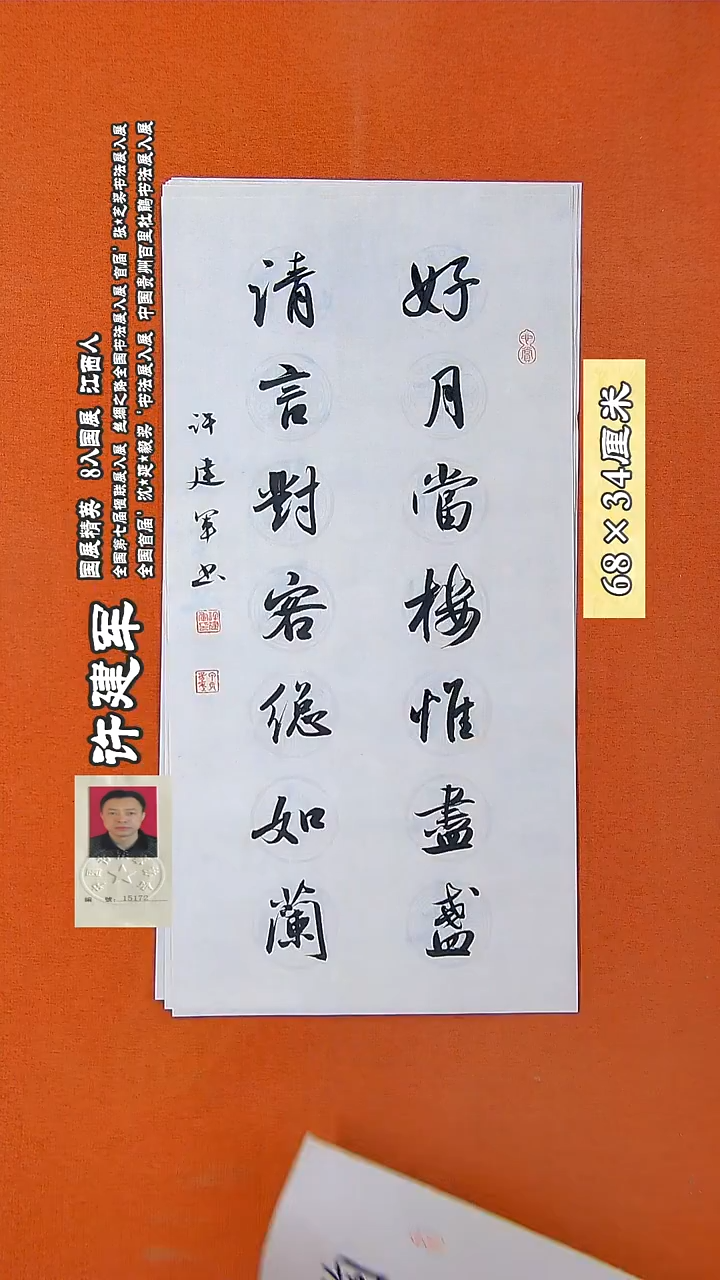 好月當楼惟盡盏
清言對客總如蘭
许建军书
68×34厘米
许建军
国展精英 8入国展 江西人
全国第七届楹联展入展 丝绸之路全国书法展入展 首届‘张*芝奖书法展入展
全国首届‘沈*延*毅奖‘书法展入展 中国贵州百里杜鹃书法展入展
编 號: 15172